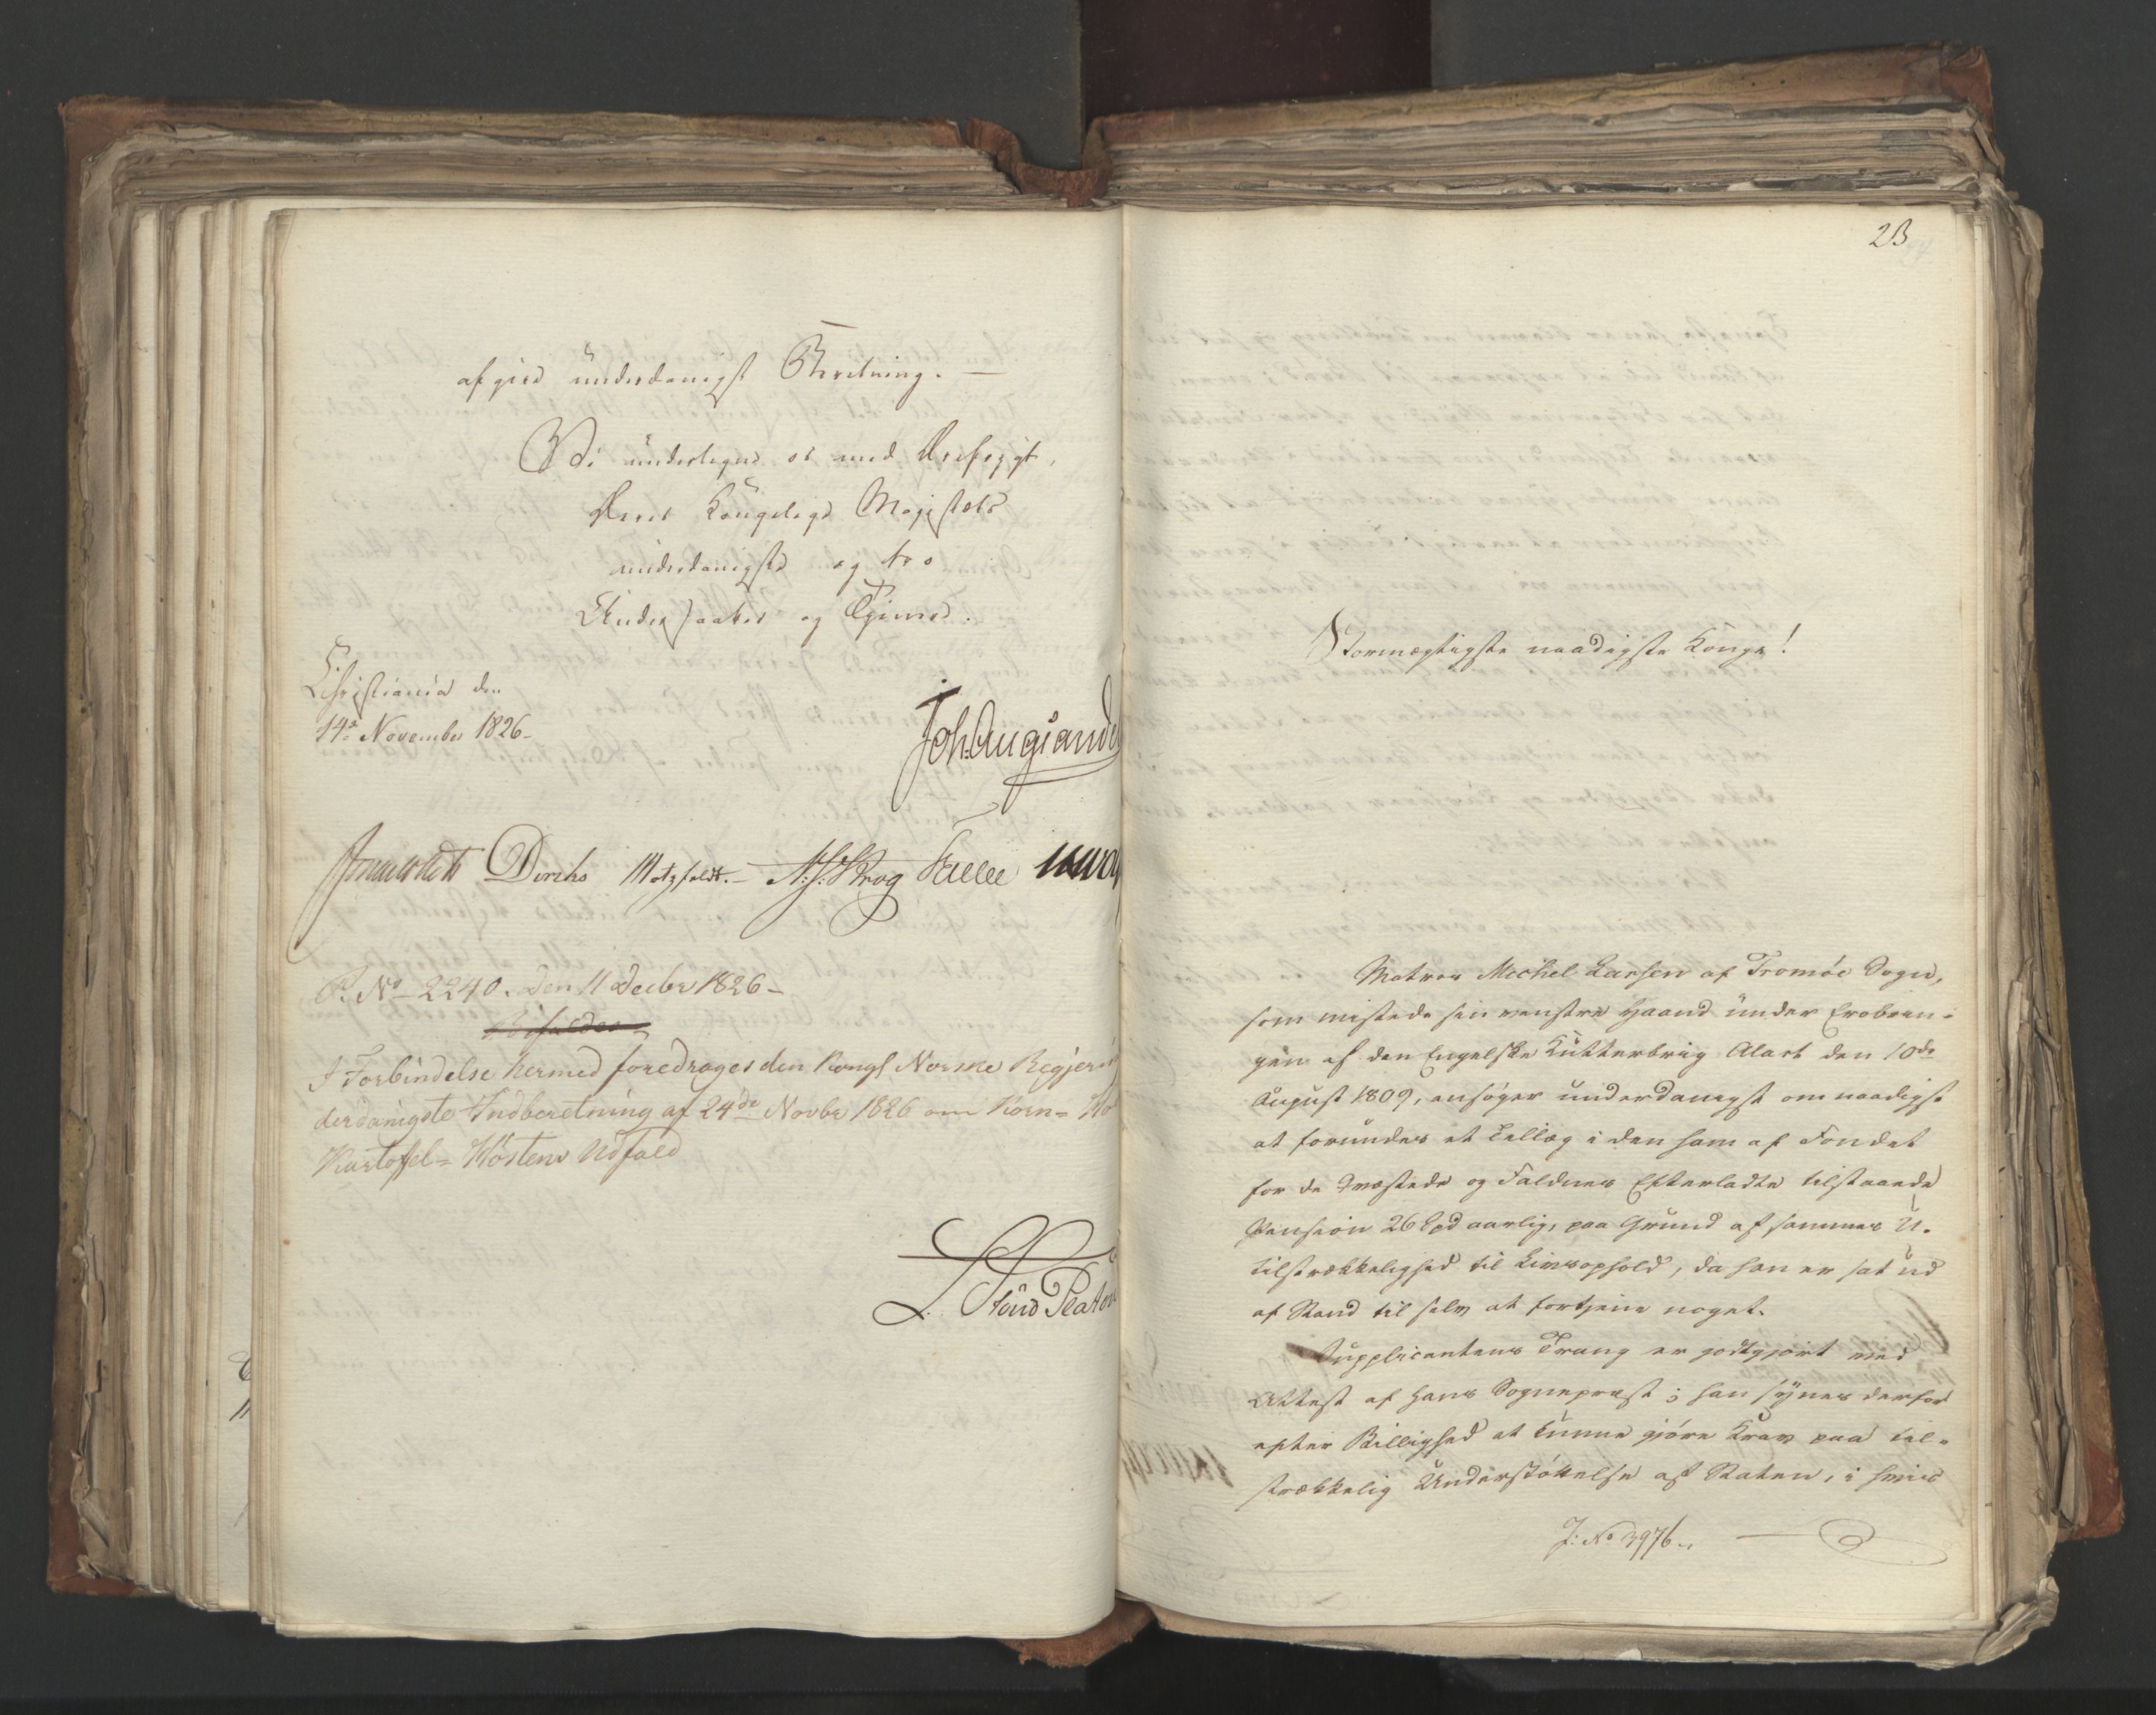 afgive underdanigst Beretning. —
Vi undertegne os med Ærefrygt,
Deres Kongelige Majestæts
underdanigste og tro
Undersaatter og Tjenere.
Christiania den
14de November 1826.
Joh. Aug. Sande
Diriks Motzfeldt. N. J. Krog
P. No 2240. den 11 Decbr 1826 –
Bifaldes
I Forbindelse hermed foredrages den Kongl Norske Regjerin
derdanigste Indberetning af 24de Novbr 1826 om Korn=
Kartoffel= Høstens Udfald
L. Stoud Platou
23
Stormægtigste naadigste Konge!
Matros Michel Larsen af Tromöe Sogn,
som mistede sin venstre Haand under Erobrin-
gen af den Engelske Kutterbrig Alart den 10de
August 1809, ansöger underdanigst om naadigst
at forundes et Tillæg i den ham af Fondet
for de Qvæstede og Faldnes Efterladte tilstaaede
Pension 26 Spd aarlig, paa Grund af sammes U-
tilstrækkelighed til Livsophold, da han er sat ud
af Stand til selv at fortjene noget.
Supplicantens Trang er godtgjort med
Attest af hans Sognepræst; han synes derfor
efter Billighed at kunne gjöre Krav paa til-
strækkelig Understöttelse af Staten, i hvis
J: No 3976.